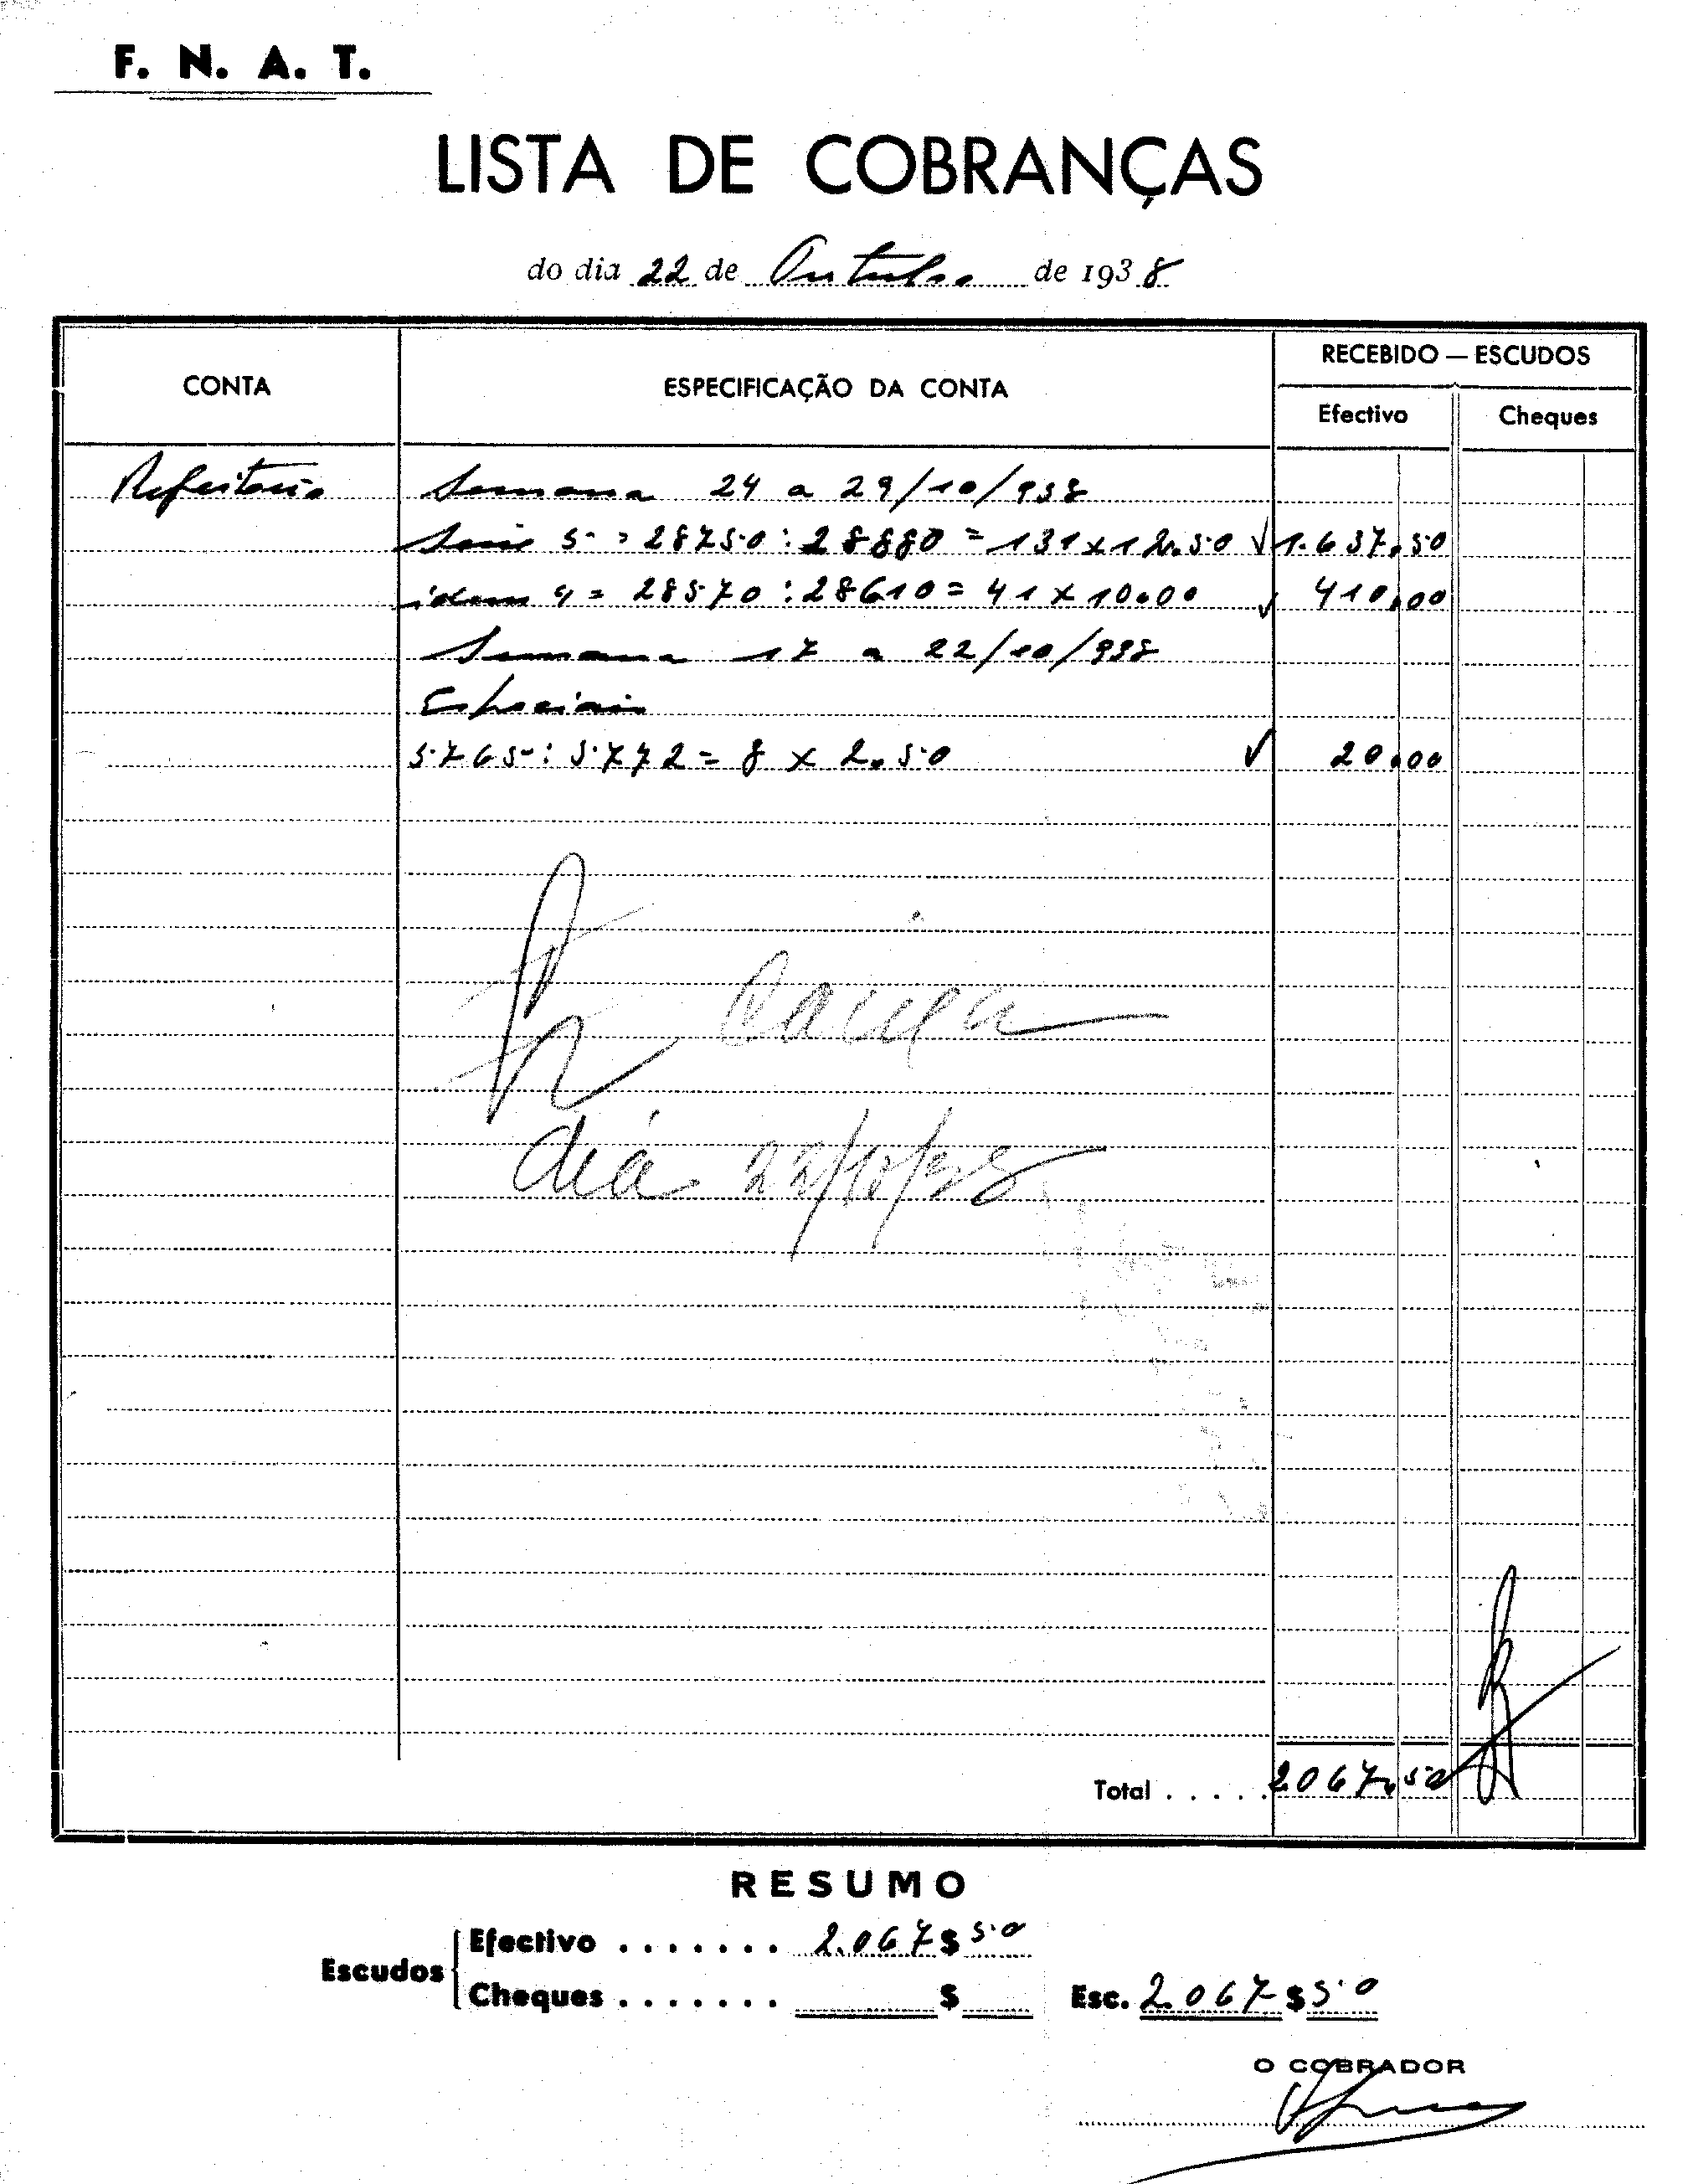 F. N. A. T.
LISTA DE COBRANÇAS
do dia 22 de Outubro de 1938
CONTA
ESPECIFICAÇÃO DA CONTA
RECEBIDO — ESCUDOS
Efectivo
Cheques
Refeitorio Semana 24 a 29/10/938
Serie 5 = 28750 : 28880 = 131 x 12.50 √ 1.637.50
idem 4 = 28570 : 28610 = 41 x 10.00 √ 410.00
Semana 17 a 22/10/938
Especiais
5765 : 5772 = 8 x 2.50 √ 20.00
Caixa
dia 22/10/38
Total . . . . . 2067.50
RESUMO
Escudos
Efectivo . . . . . . . 2.067$50
Cheques . . . . . . . $
Esc. 2.067$50
O COBRADOR